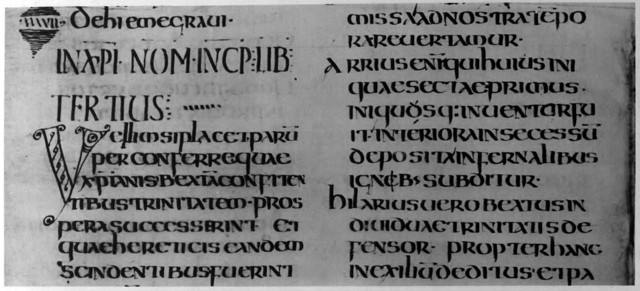 XXXVII· De hieme gravi·
IN XPI· NOM· INCP· LIB·
TERTIUS·
Vellim si placet parū
per conferre quae
xp̄ianis beatā confiten
tibus trinitatem· pros
pera successerint et
quae hereticis eandem
scindentibus fuerint
missa ad nostra tēpo
ra revertamur·
Arrius enī qui huius ini
quae sectae primus·
iniquosq: inventor fu
it· interiora in secessū
deposita infernalibus
ignib· subditur·
hilarius vero beatus in
dividuae trinitatis de
fensor· propter hanc
in exiliū deditus· et pa